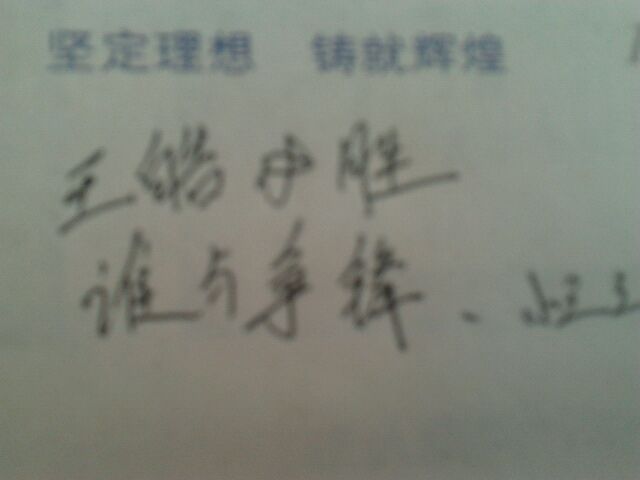 坚定理想 铸就辉煌
王皓必胜
谁与争锋、